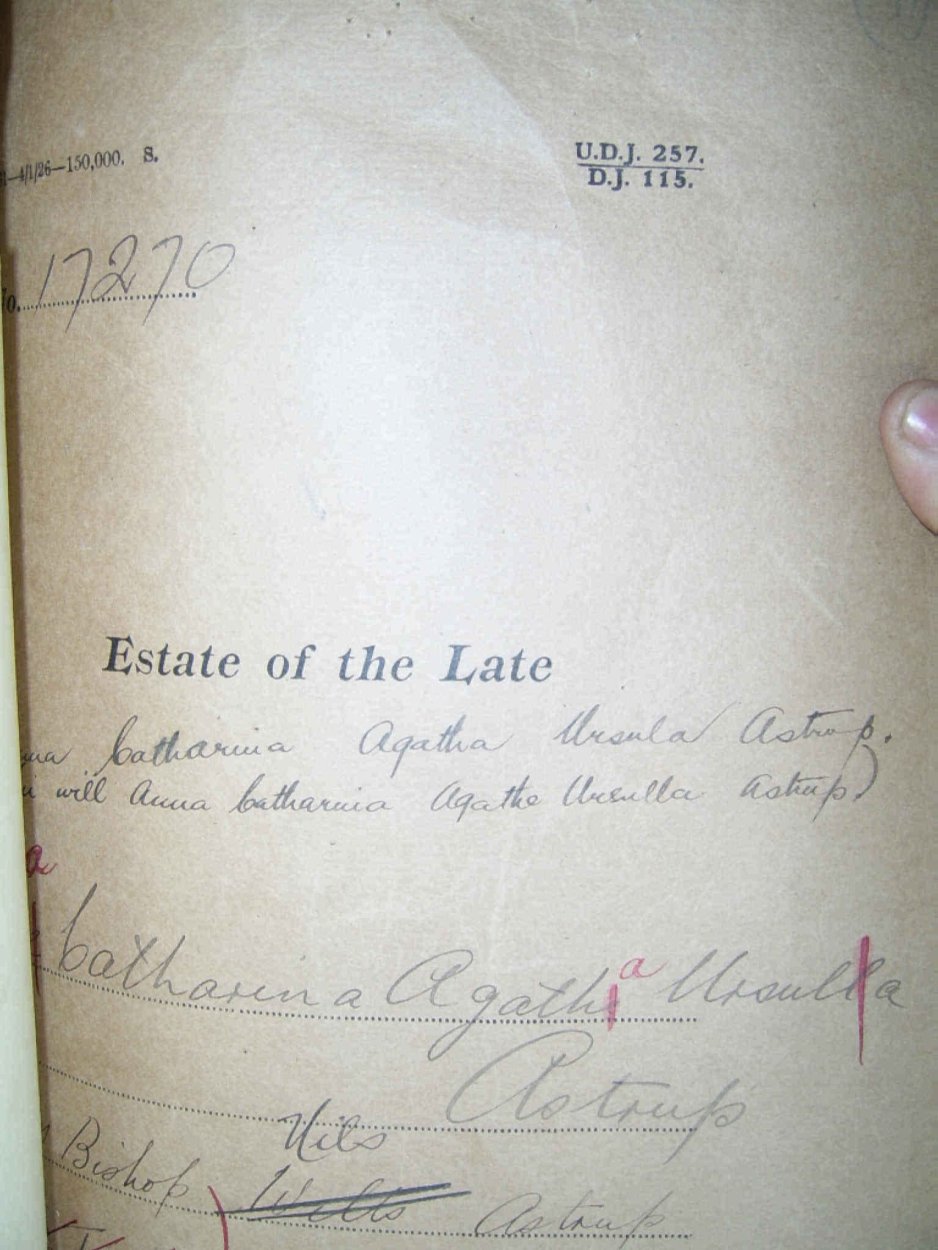 4/1/26—150,000. S.
U.D.J. 257.
D.J. 115.
No. 17270
Estate of the Late
Catharina Agatha Ursula Astrup.
will Anna Catharina Agathe Ursulla Astrup)
a
Catharina Agatha a Ursulla
Astrup
Nils
Bishop Wills Astrup